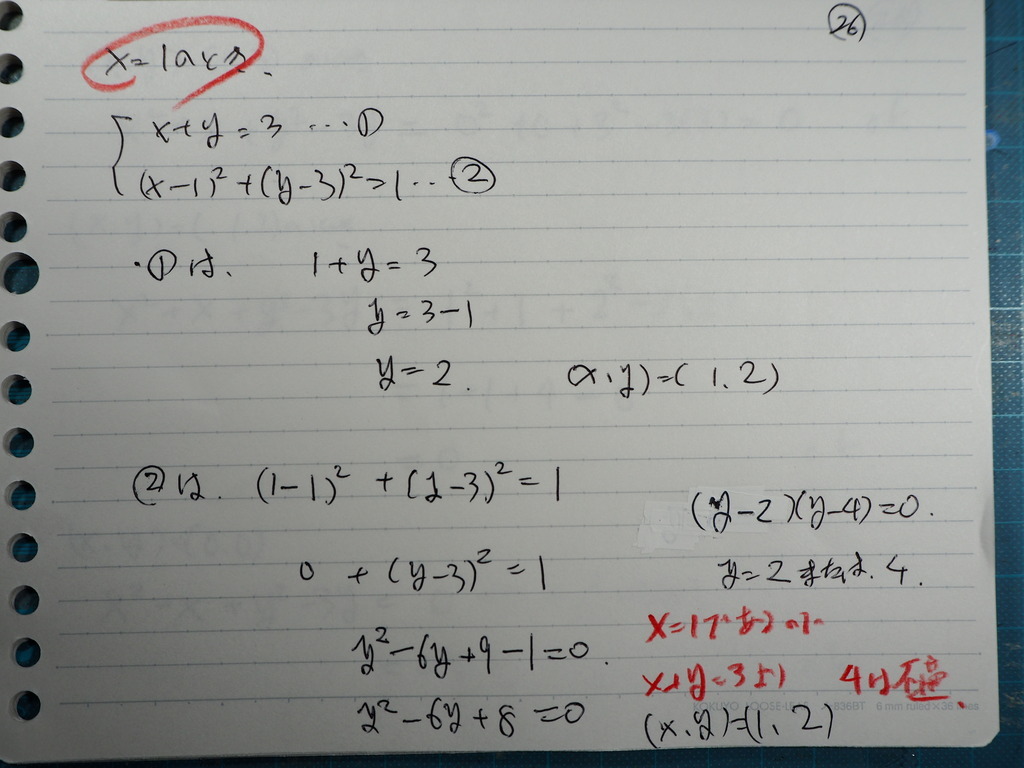 ㉖
x=1のとき.
x+y=3 …①
(x-1)²+(y-3)²=1‥②
・①は. 1+y=3
y=3-1
y=2. (x,y)=(1.2)
②は. (1-1)²+(y-3)²=1
0+(y-3)²=1
y²-6y+9-1=0.
y²-6y+8=0
(y-2)(y-4)=0.
y=2または.4.
x=1であるので
x+y=3より 4は不適.
(x,y)=(1,2)
KOKUYO LOOSE-LEAF 836BT 6 mm ruled×36 lines